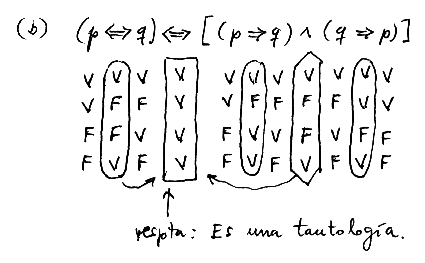 (b) (p ⇔ q] ⇔ [(p ⇒ q) ∧ (q ⇒ p)]
V V V V V V V V V V V
V F F V V F F F F V V
F F V V F V V F V F F
F V F V F V F V F V F
respta: Es una tautología.